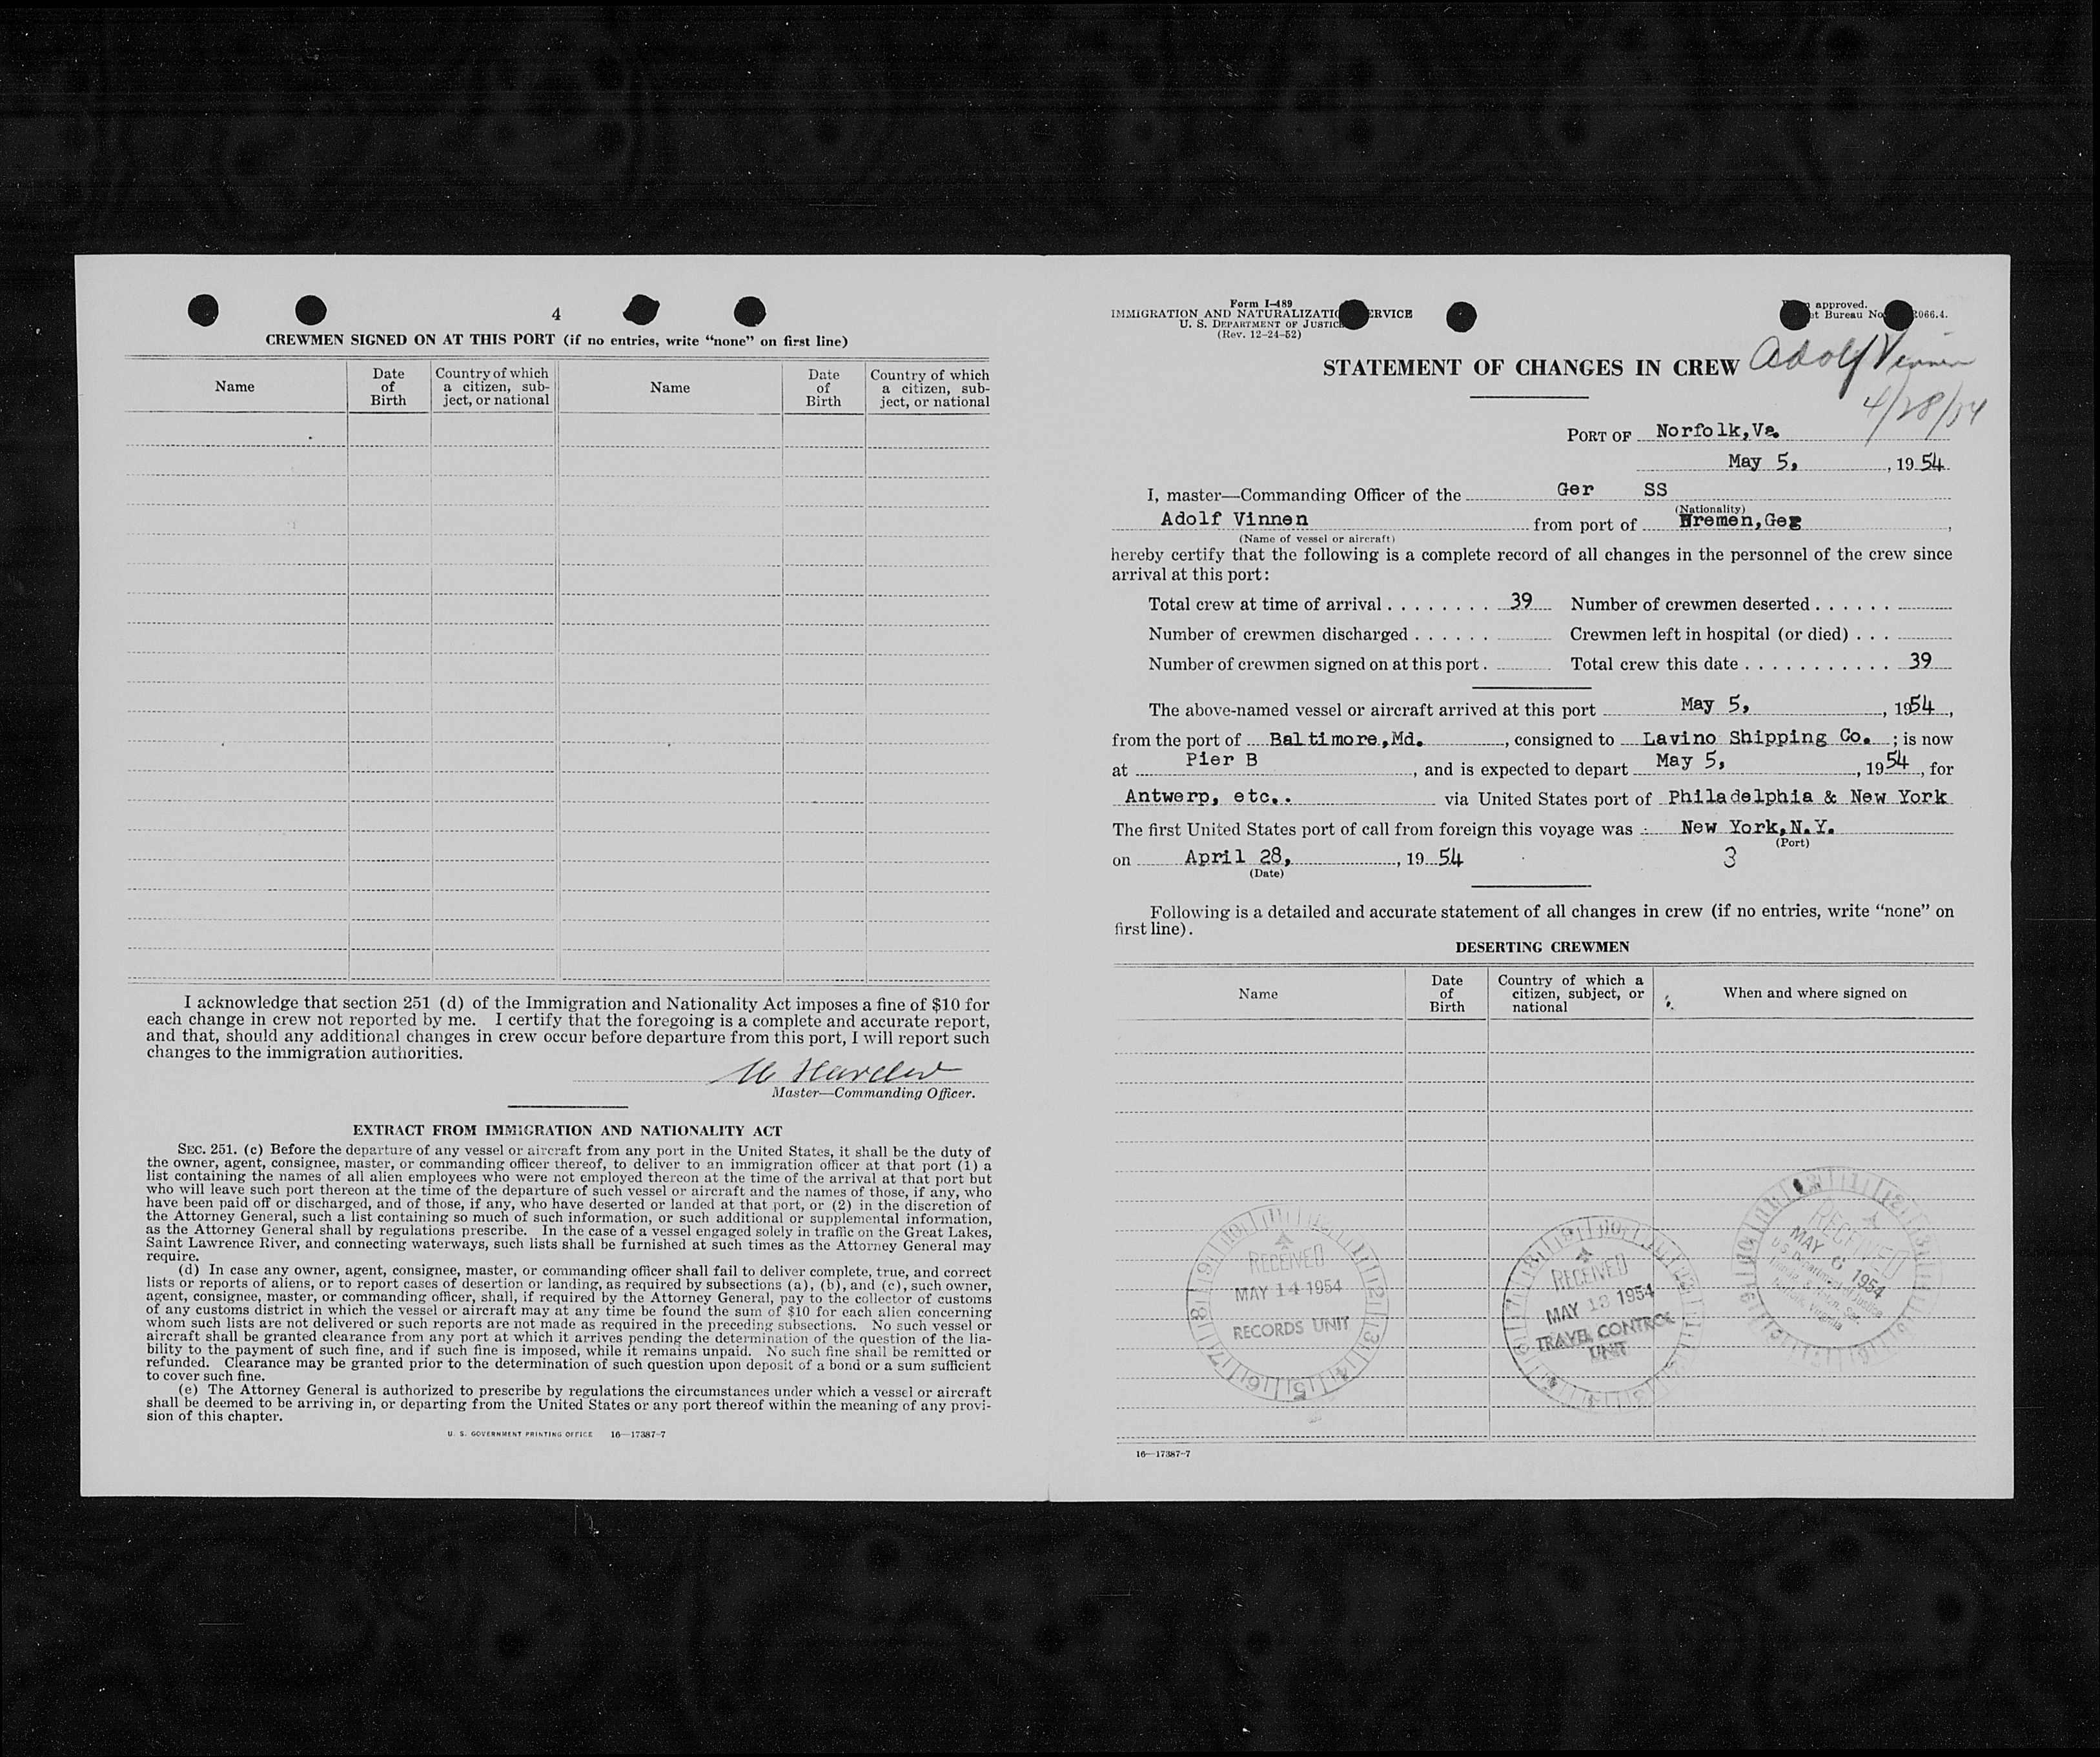 4
CREWMEN SIGNED ON AT THIS PORT (if no entries, write “none” on first line)
Name
Date of Birth
Country of which a citizen, sub-ject, or national
Name
Date of Birth
Country of which a citizen, sub-ject, or national
I acknowledge that section 251 (d) of the Immigration and Nationality Act imposes a fine of $10 for
each change in crew not reported by me. I certify that the foregoing is a complete and accurate report,
and that, should any additional changes in crew occur before departure from this port, I will report such
changes to the immigration authorities.
Master—Commanding Officer.
EXTRACT FROM IMMIGRATION AND NATIONALITY ACT
SEC. 251. (c) Before the departure of any vessel or aircraft from any port in the United States, it shall be the duty of
the owner, agent, consignee, master, or commanding officer thereof, to deliver to an immigration officer at that port (1) a
list containing the names of all alien employees who were not employed thereon at the time of the arrival at that port but
who will leave such port thereon at the time of the departure of such vessel or aircraft and the names of those, if any, who
have been paid off or discharged, and of those, if any, who have deserted or landed at that port, or (2) in the discretion of
the Attorney General, such a list containing so much of such information, or such additional or supplemental information,
as the Attorney General shall by regulations prescribe. In the case of a vessel engaged solely in traffic on the Great Lakes,
Saint Lawrence River, and connecting waterways, such lists shall be furnished at such times as the Attorney General may
require.
(d) In case any owner, agent, consignee, master, or commanding officer shall fail to deliver complete, true, and correct
lists or reports of aliens, or to report cases of desertion or landing, as required by subsections (a), (b), and (c), such owner,
agent, consignee, master, or commanding officer, shall, if required by the Attorney General, pay to the collector of customs
of any customs district in which the vessel or aircraft may at any time be found the sum of $10 for each alien concerning
whom such lists are not delivered or such reports are not made as required in the preceding subsections. No such vessel or
aircraft shall be granted clearance from any port at which it arrives pending the determination of the question of the lia-
bility to the payment of such fine, and if such fine is imposed, while it remains unpaid. No such fine shall be remitted or
refunded. Clearance may be granted prior to the determination of such question upon deposit of a bond or a sum sufficient
to cover such fine.
(e) The Attorney General is authorized to prescribe by regulations the circumstances under which a vessel or aircraft
shall be deemed to be arriving in, or departing from the United States or any port thereof within the meaning of any provi-
sion of this chapter.
U. S. GOVERNMENT PRINTING OFFICE 16—17387-7
Form I-489
IMMIGRATION AND NATURALIZATIO ERVICE
U. S. DEPARTMENT OF JUSTIC
(Rev. 12-24-52)
approved.
et Bureau No. 066.4.
STATEMENT OF CHANGES IN CREW Adolf Vinnen
4/28/54
PORT OF Norfolk,Va.
May 5, , 19 54
I, master—Commanding Officer of the Ger SS
(Nationality)
Adolf Vinnen from port of Bremen,Ger ,
(Name of vessel or aircraft)
hereby certify that the following is a complete record of all changes in the personnel of the crew since
arrival at this port:
Total crew at time of arrival . . . . . . . . 39 Number of crewmen deserted . . . . . .
Number of crewmen discharged . . . . . . Crewmen left in hospital (or died) . . .
Number of crewmen signed on at this port . Total crew this date . . . . . . . . . . . 39
The above-named vessel or aircraft arrived at this port May 5, , 1954 ,
from the port of Baltimore,Md. , consigned to Lavino Shipping Co. ; is now
at Pier B , and is expected to depart May 5, , 19 54 , for
Antwerp, etc.. via United States port of Philadelphia & New York
The first United States port of call from foreign this voyage was New York,N.Y.
(Port)
on April 28, , 19 54 3
(Date)
Following is a detailed and accurate statement of all changes in crew (if no entries, write “none” on
first line).
DESERTING CREWMEN
Name
Date of Birth
Country of which a citizen, subject, or national
When and where signed on
RECEIVED
MAY 14 1954
RECORDS UNIT
RECEIVED
MAY 13 1954
TRAVEL CONTROL
UNIT
RECEIVED
MAY 6 1954
U.S. Department of Justice
Norfolk, Virginia
16—17387-7